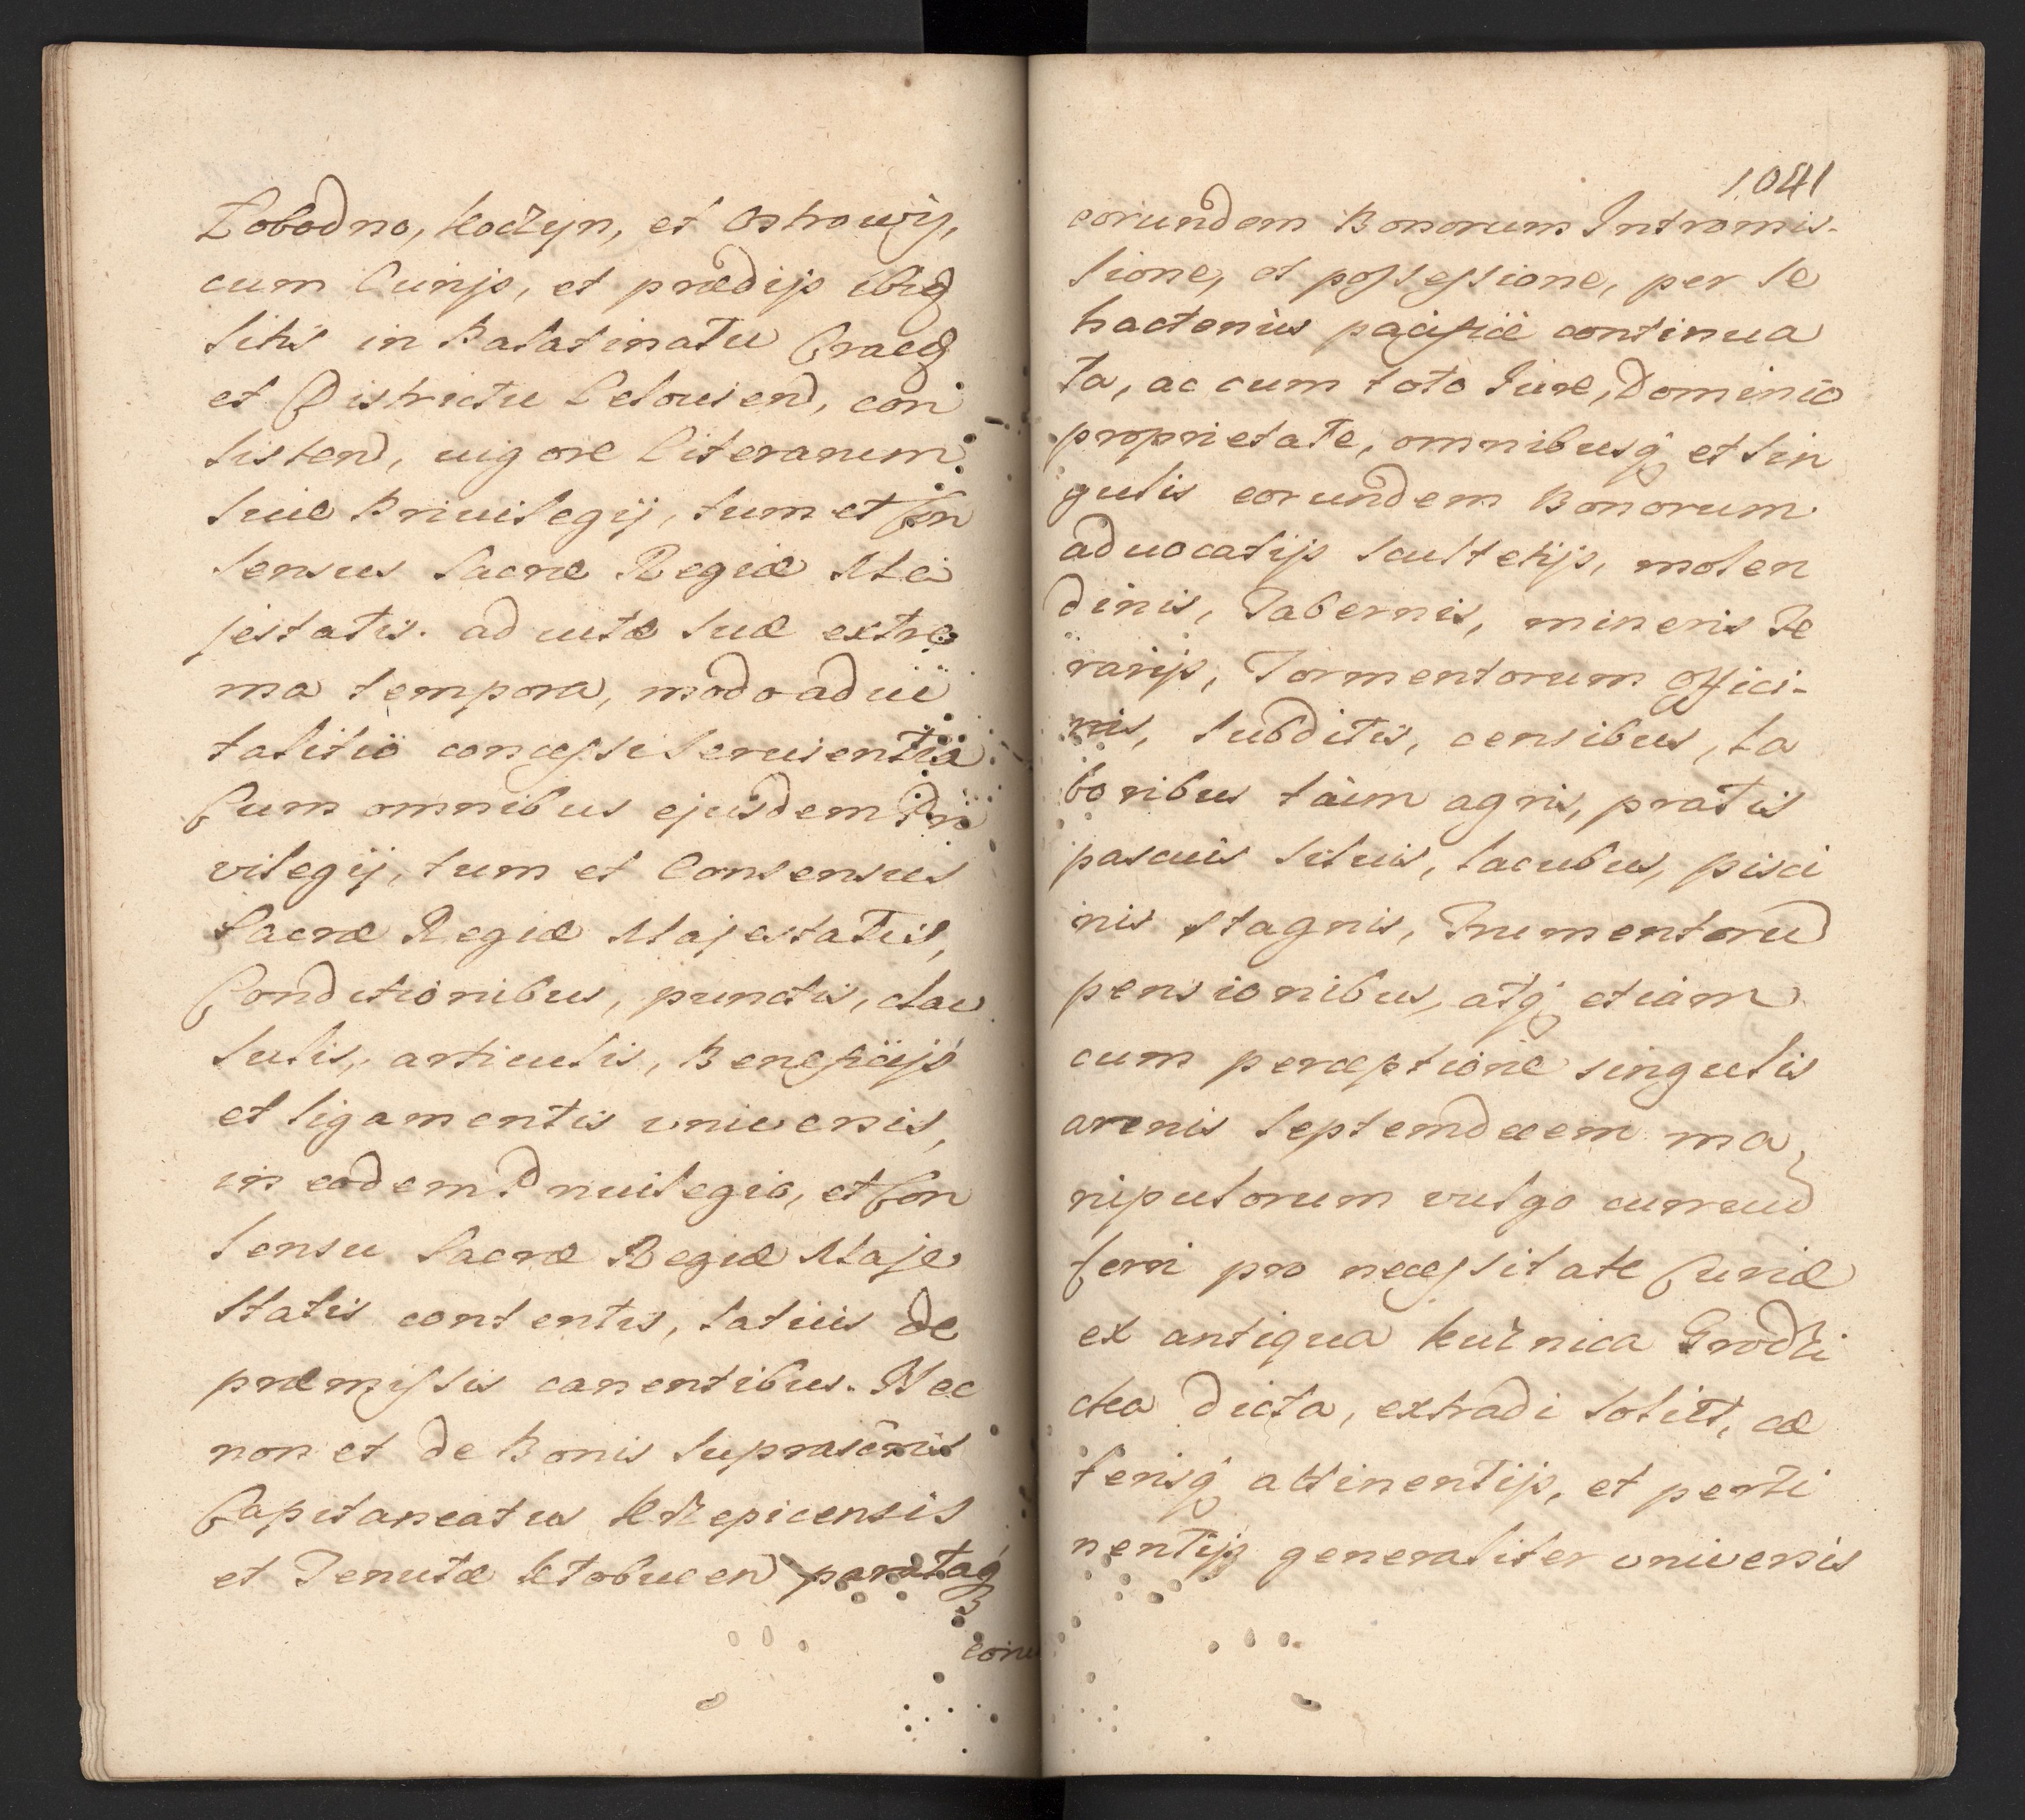 Łobodno, Koczyn, et Ostrowÿ,
cum Curijs, et prædijs ibiđ
sitis in Palatinatu Cracoꝝ
et Districtu Lelouien, con
sisten, uigore Literarum
siue Priuilegij, tum et Con
sensus Sacræ Regiæ Ma
jestatis. ad uitæ suæ extre
ma tempora, modo aduï
talitio concessi seruientia
Cum omnibus ejusdem Pri
vilegij, tum et Consensus
Sacræ Regiæ Majestatis,
Conditionibus, punctis, clau
sulis, articulis, Beneficijs
et ligamentis vniuersis,
in eodem Priuilegio, et Con
sensu Sacræ Regiæ Maje
statis contentis, latius de
præmissis canentibus. Nec
non et de Bonis suprascriis
Capitaneatus Krzepicensis
et Tenutæ Kłobucen partaq́
eoru
1041
eorundem Bonorum Intromis-
sione, et possessione, per se
hactenus pacificè continua
ta, ac cum toto Iure, Dominio
proprietate, omnibusq́ et sin
gulis eorundem Bonorum
aduocatijs scultetijs, molen
dinis, Tabernis, mineris Fe
rarijs, Tormentorum offici-
nis, subditis, censibus, la
boribus taim agris, pratis
pascuis siluis, lacubus, pisci
nis stagnis, Frumentoru
pensionibus, atq́ etiam
cum perceptione singulis
arenis septemdecem ma
nipulorum vulgo curruu
ferri pro necessitate Curiæ
ex antiqua kuźnica Grodzi
cka dicta, extradi solitt, cæ
terisq́ attinentijs, et perti
nentijs generaliter vniuersis